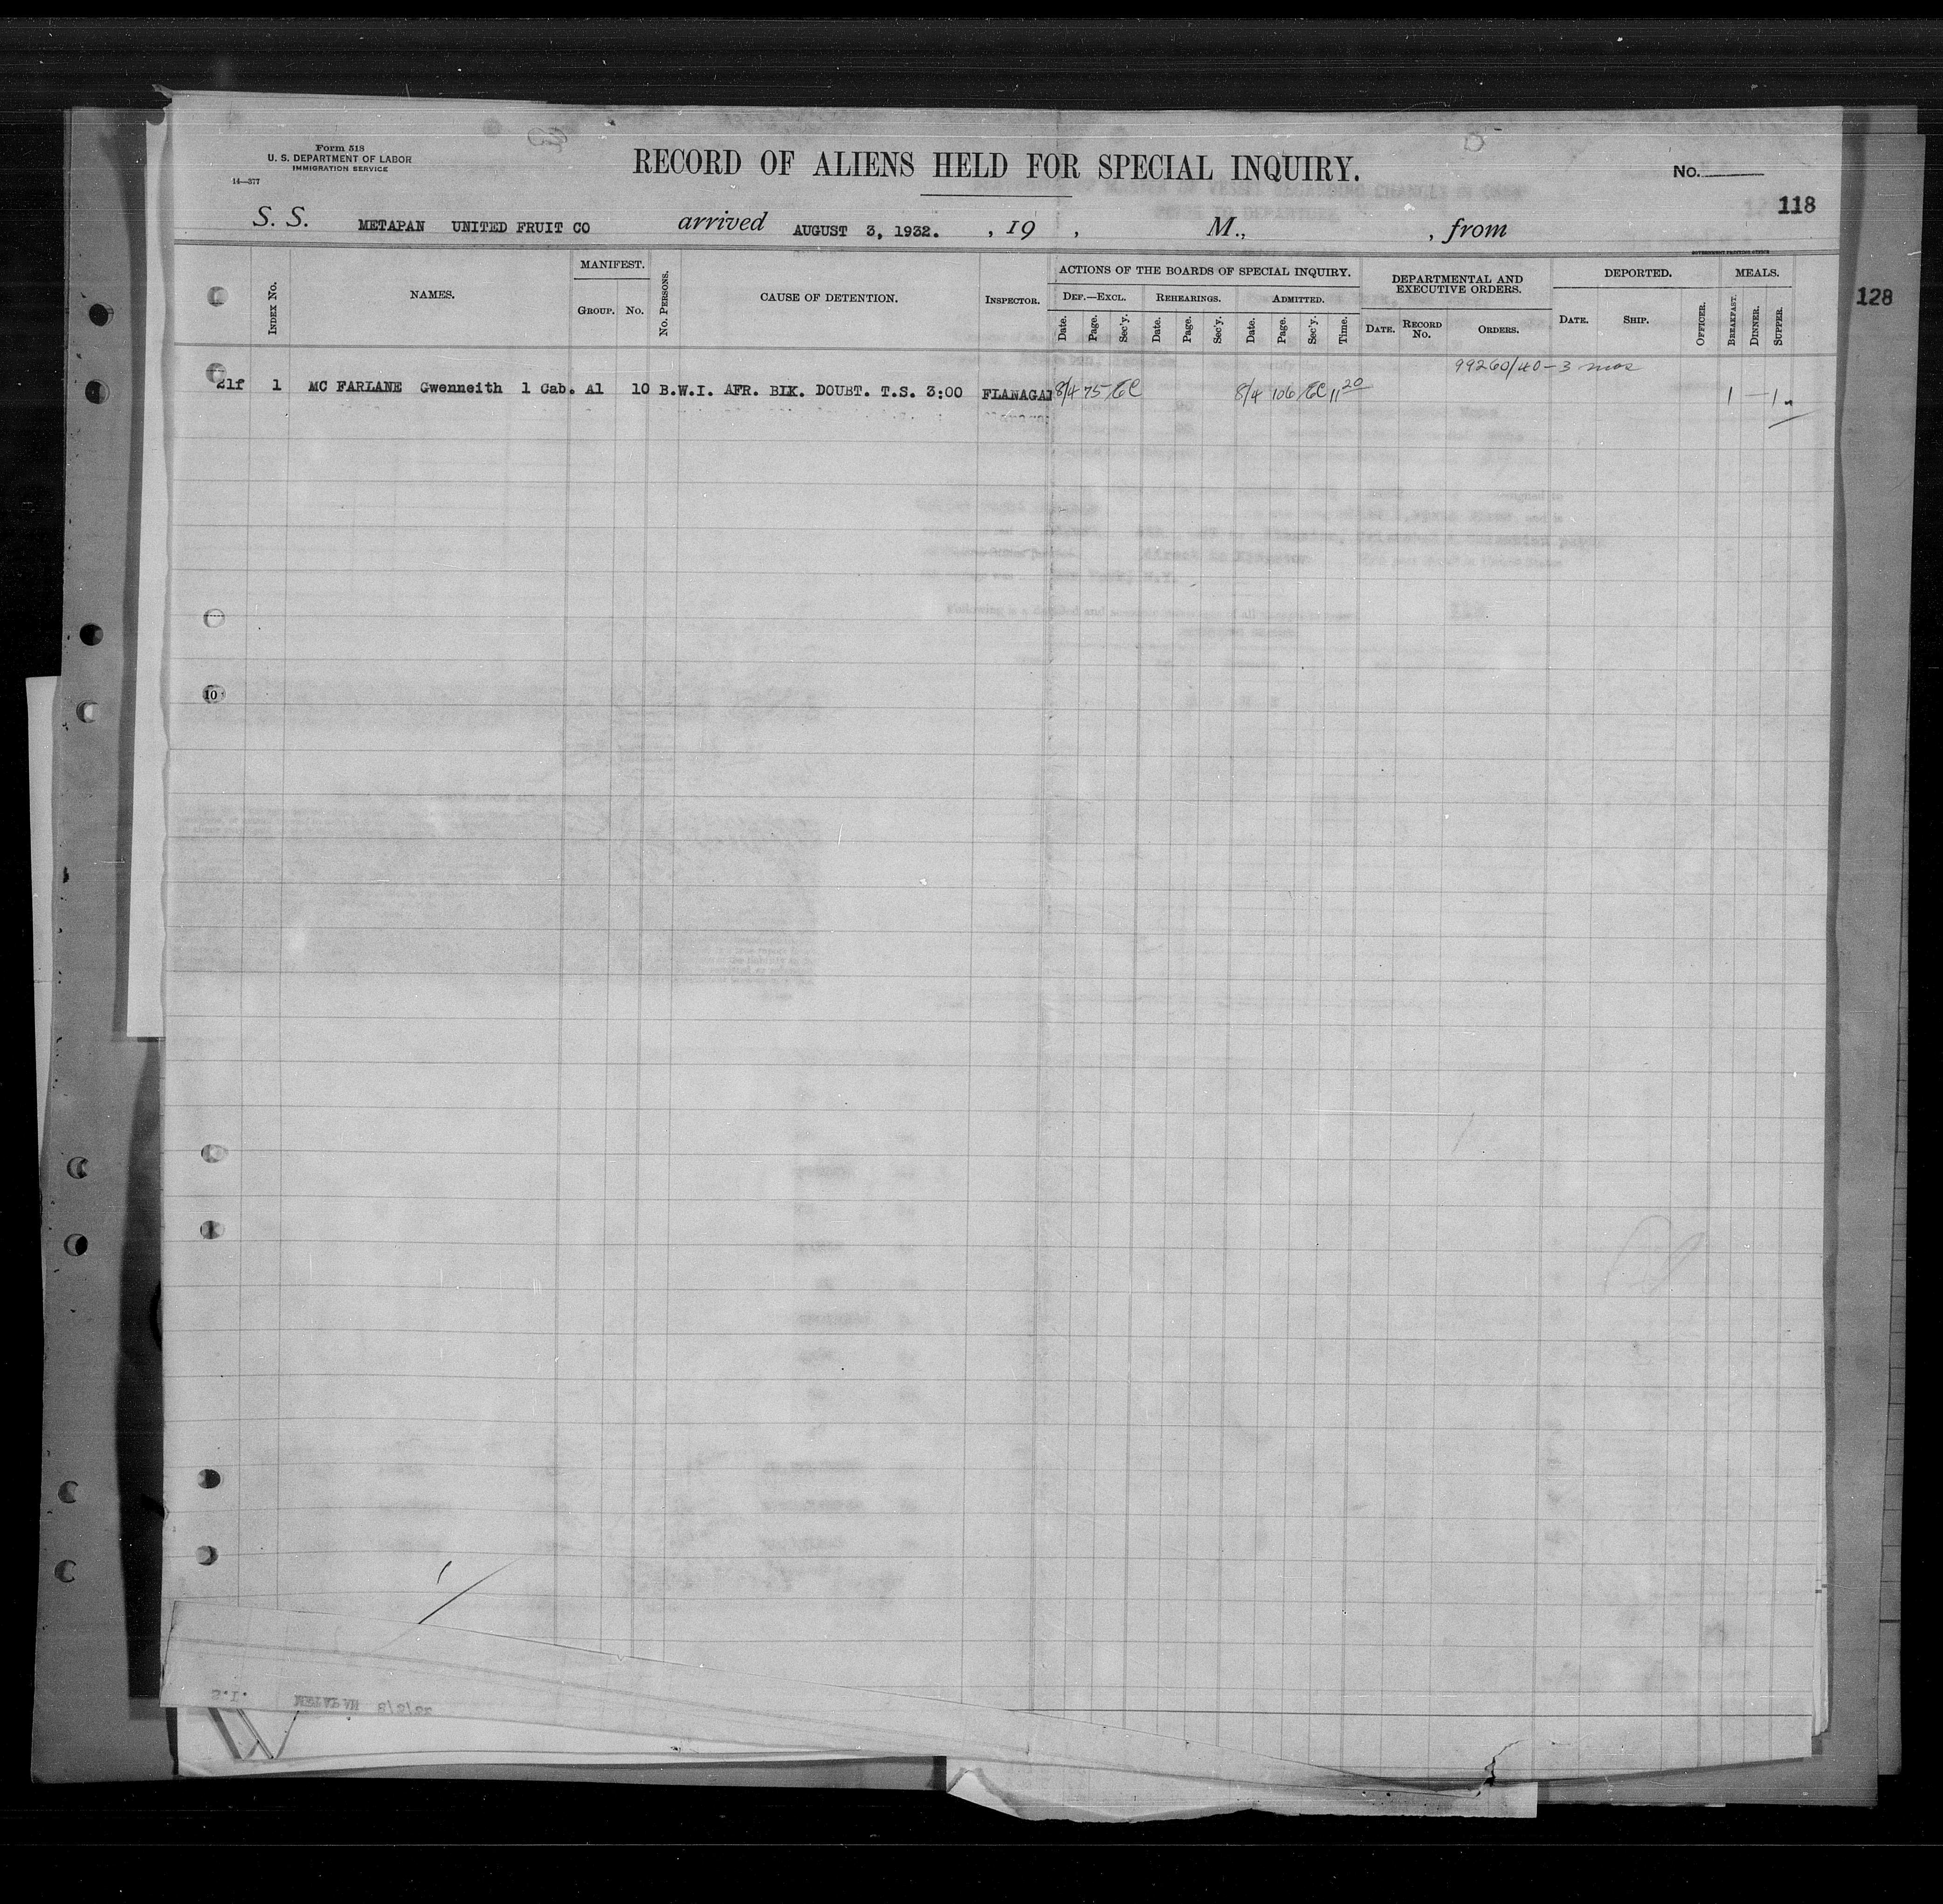 Form 518
U. S. DEPARTMENT OF LABOR
IMMIGRATION SERVICE
14—377
RECORD OF ALIENS HELD FOR SPECIAL INQUIRY.
No.
118
S. S. METAPAN UNITED FRUIT CO arrived AUGUST 3, 1932. , 19 , M., , from
GOVERNMENT PRINTING OFFICE
128
INDEX No.
NAMES.
MANIFEST.
GROUP. No.
No. PERSONS.
CAUSE OF DETENTION.
INSPECTOR.
ACTIONS OF THE BOARDS OF SPECIAL INQUIRY.
DEF.—EXCL. REHEARINGS. ADMITTED.
Date. Page. Sec'y. Date. Page. Sec'y. Date. Page. Sec'y. Time.
DEPARTMENTAL AND
EXECUTIVE ORDERS.
DATE. RECORD No. ORDERS.
DEPORTED.
DATE. SHIP. OFFICER.
MEALS.
BREAKFAST. DINNER. SUPPER.
99260/40-3 mos
21f 1 MC FARLANE Gwenneith 1 Cab. A1 10 B.W.I. AFR. BLK. DOUBT. T.S. 3:00 FLANAGAN 8/4 75 EC 8/4 106 EC 11 20 1 — 1
10
S.I. METAPAN 8/3/32